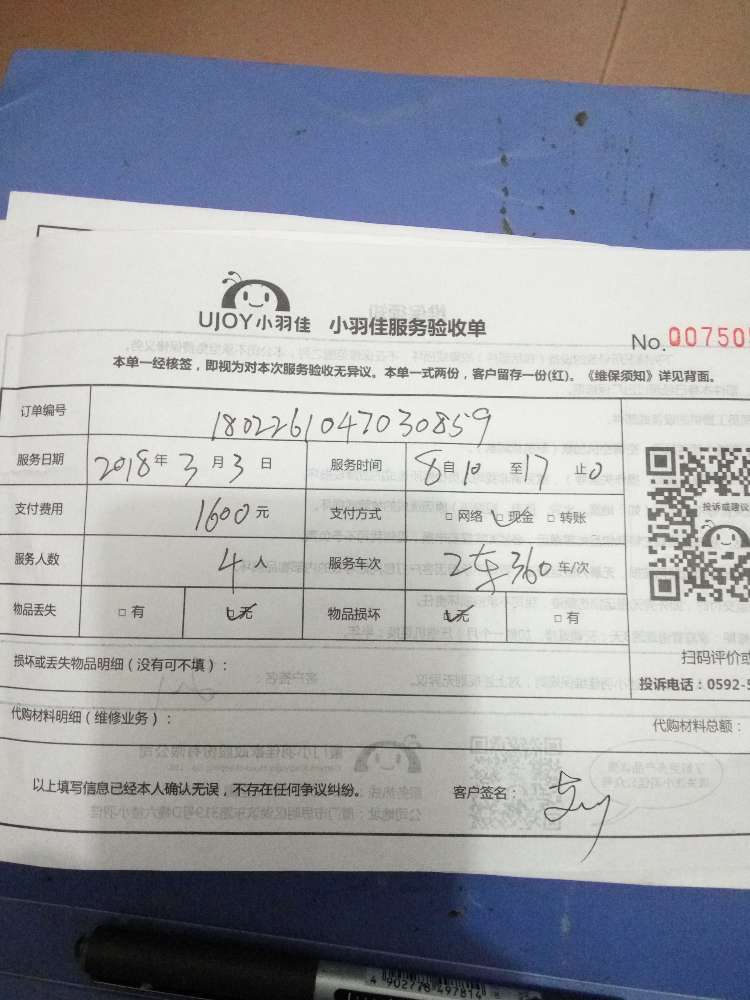 UJOY小羽佳 小羽佳服务验收单
No. 007505
本单一经核签，即视为对本次服务验收无异议。本单一式两份，客户留存一份(红)。《维保须知》详见背面。
订单编号 1802261047030859
服务日期 2018年3月3日 服务时间 8自10至17止0
支付费用 1600元 支付方式 □网络 □现金 □转账
投诉或建议
服务人数 4人 服务车次 2车360车/次
物品丢失 □有 □无 物品损坏 □无 □有
扫码评价或
损坏或丢失物品明细（没有可不填）：
投诉电话：0592-5
代购材料明细（维修业务）：
代购材料总额：
以上填写信息已经本人确认无误，不存在任何争议纠纷。 客户签名：
4 902778 497814